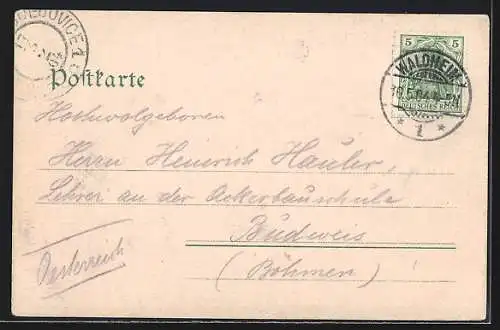 BUDĚJOVICE 1
5 5
DEUTSCHES REICH
WALDHEIM
* 1 *
Postkarte
Hochwolgeboren
Herrn Heinrich Hauler,
Lehrer an der Ackerbauschule
Budweis
(Böhmen)
Oesterreich